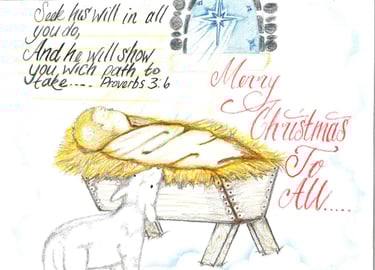 Seek his will in all
you do,
And he will show
you wich path to
take..... Proverbs 3:6
Merry
Christmas
To
All.....